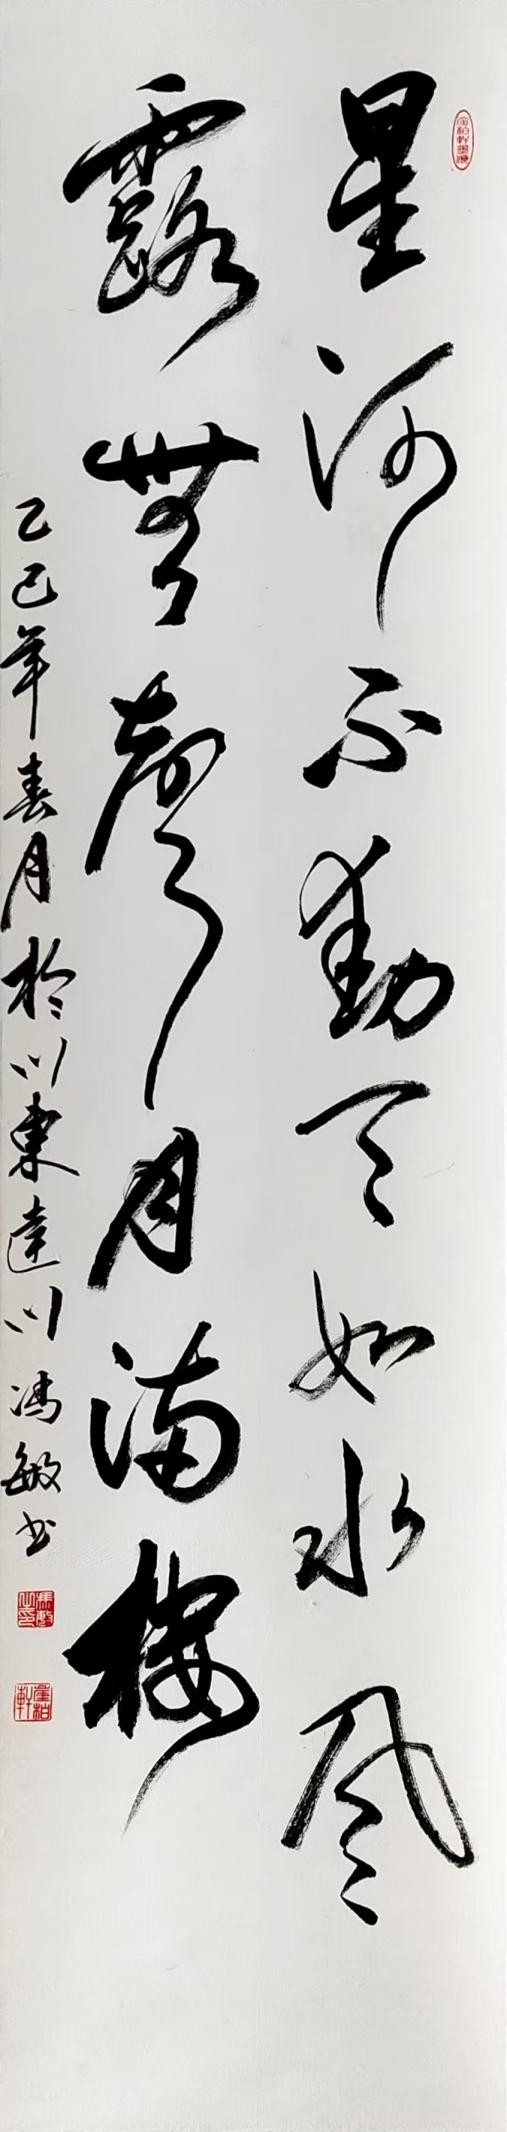 星河不動天如水風
露無聲月滿樓
乙巳年春月於川東達川馮敏書